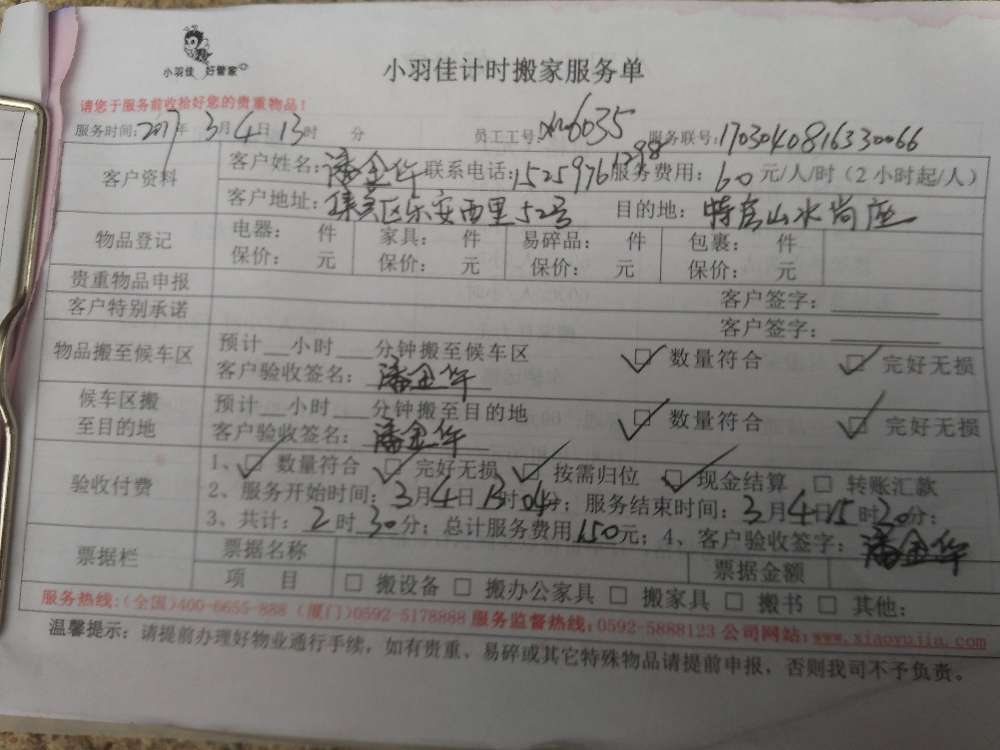 小羽佳 好管家
小羽佳计时搬家服务单
请您于服务前收拾好您的贵重物品！
服务时间：2017年3月4日13时 分 员工工号：xm6035 服务联号：1703040816330066
客户资料 客户姓名：潘金华 联系电话：15259761298 服务费用：60元/人/时（2小时起/人）
客户地址：集美区乐安西里52号 目的地：特房山水尚座
物品登记 电器： 件 家具： 件 易碎品： 件 包裹： 件
保价： 元 保价： 元 保价： 元 保价： 元
贵重物品申报 客户签字：
客户特别承诺 客户签字：
物品搬至候车区 预计__小时__分钟搬至候车区 数量符合 完好无损
客户验收签名：潘金华
候车区搬至目的地 预计__小时__分钟搬至目的地 数量符合 完好无损
客户验收签名：潘金华
验收付费 1、数量符合 完好无损 按需归位 现金结算 转账汇款
2、服务开始时间：3月4日13时04分；服务结束时间：3月4日15时30分；
3、共计：2时30分；总计服务费用150元；4、客户验收签字：潘金华
票据栏 票据名称 票据金额
项 目 搬设备 搬办公家具 搬家具 搬书 其他：
服务热线：(全国)400-6655-888 (厦门)0592-5178888 服务监督热线：0592-5888123 公司网站：www.xiaoyujia.com
温馨提示：请提前办理好物业通行手续，如有贵重、易碎或其它特殊物品请提前申报，否则我司不予负责。